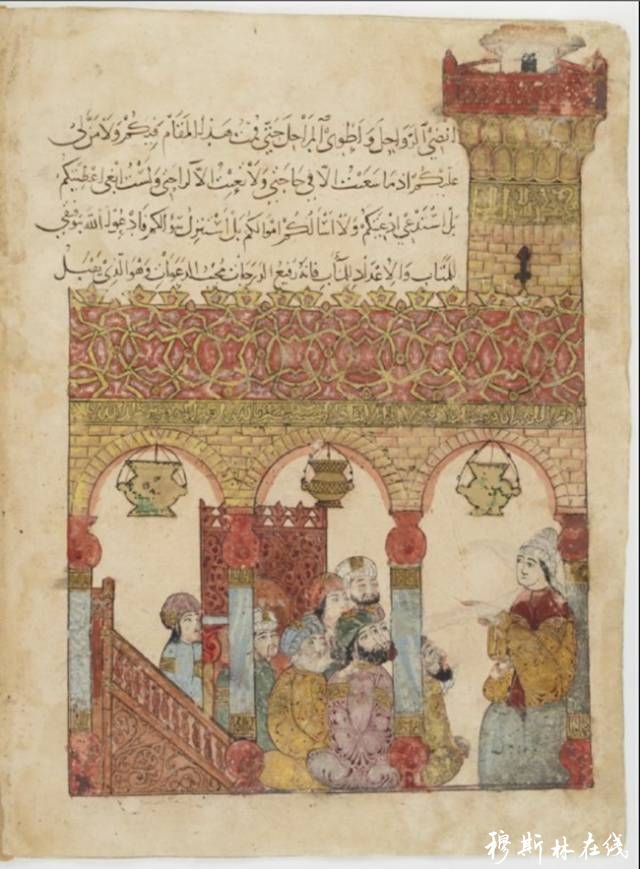 انضي الرواحل واطوي المراحل حتى قمت هذا المقام فيكم ولا من لي
عليكم اذ ما سعيت الا في حاجتي ولا تعبت الا لراحتي ولست ابغي اعطيتكم
بل استدعي ادعيتكم ولا اسالكم اموالكم بل استنزل سؤالكم فادعوا الله بتوفيقي
للمتاب والاعداد للمآب فانه رفيع الدرجات مجيب الدعوات وهو الذي يقبل
穆斯林在线